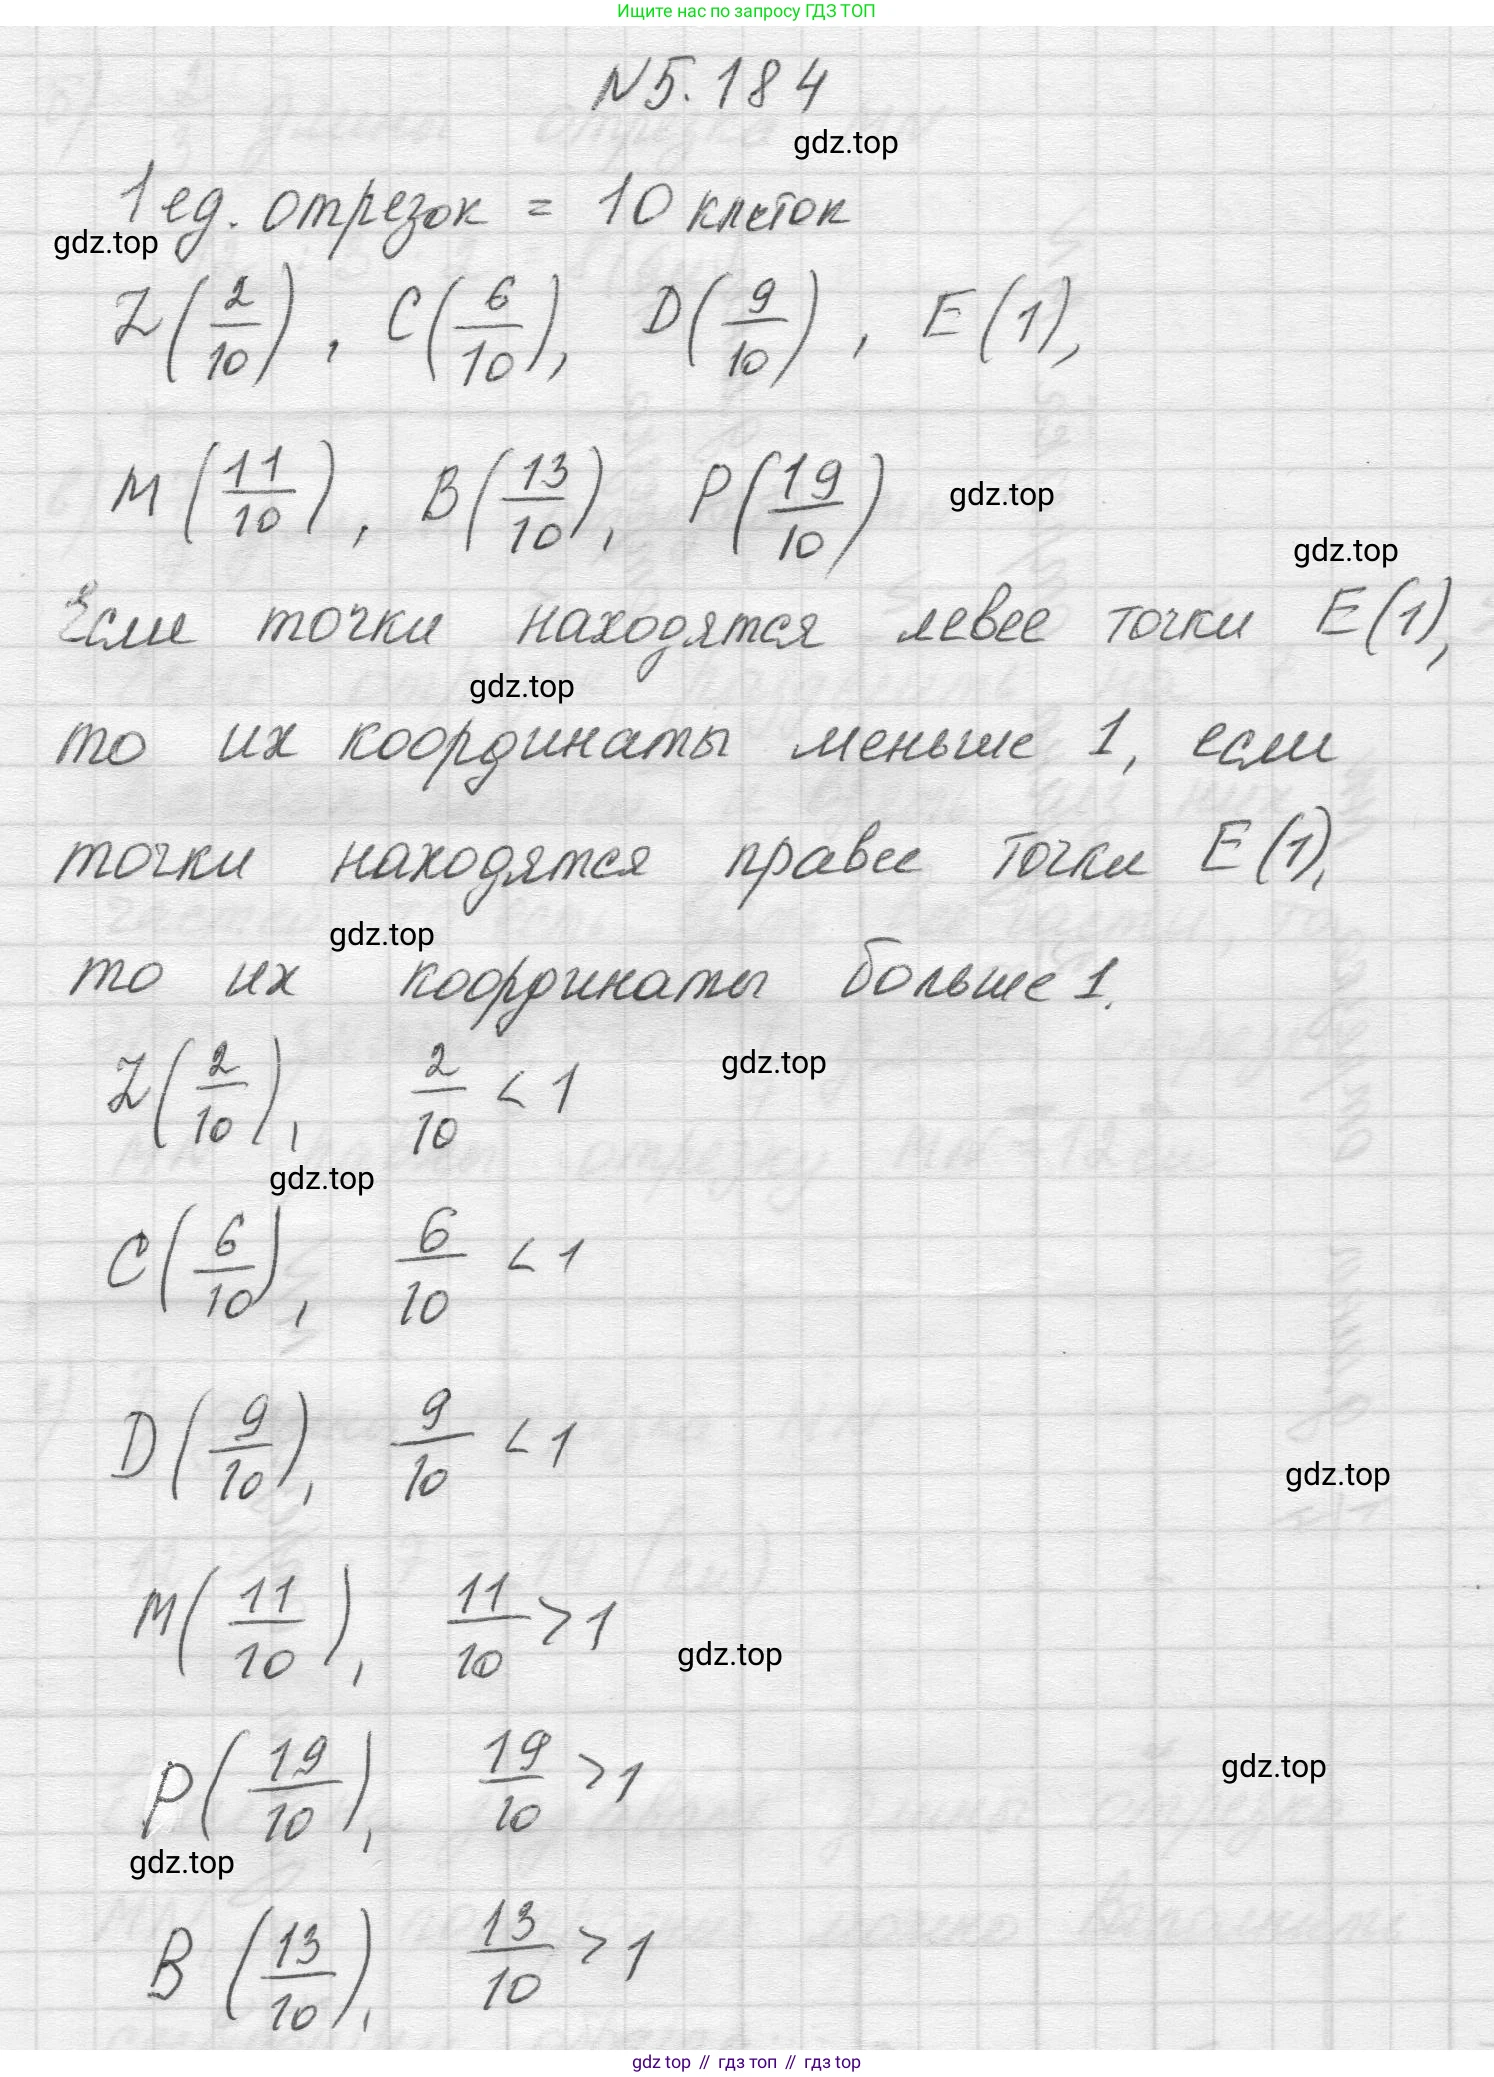 Ищите нас по запросу ГДЗ ТОП
№5.184
gdz.top
1 ед. отрезок = 10 клеток
gdz.top
Z(2/10), C(6/10), D(9/10), E(1),
M(11/10), B(13/10), P(19/10)
gdz.top
gdz.top
Если точки находятся левее точки E(1),
gdz.top
то их координаты меньше 1, если
точки находятся правее точки E(1),
gdz.top
то их координаты больше 1.
gdz.top
Z(2/10), 2/10 < 1
gdz.top
C(6/10), 6/10 < 1
D(9/10), 9/10 < 1
gdz.top
M(11/10), 11/10 > 1
gdz.top
P(19/10), 19/10 > 1
gdz.top
gdz.top
B(13/10), 13/10 > 1
gdz top // гдз топ // гдз top